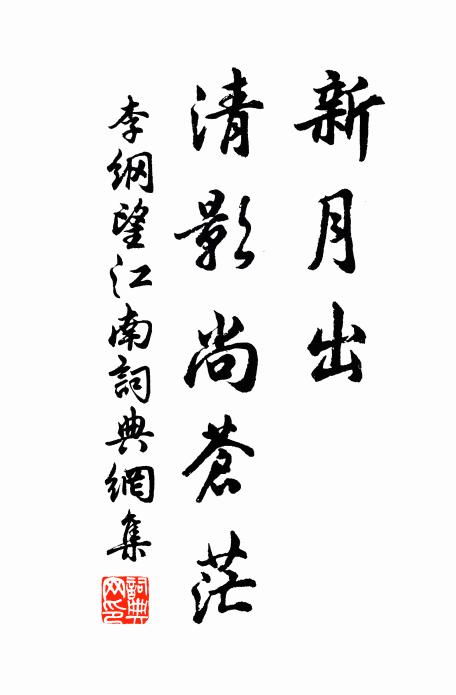 新月出
清影尚蒼茫
李綱望江南詞典網集
詞典網印